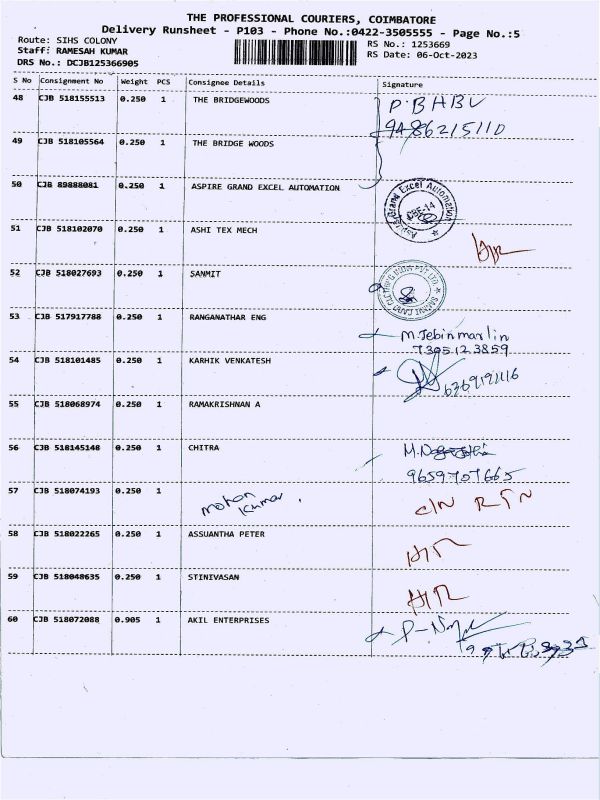 THE PROFESSIONAL COURIERS, COIMBATORE
Delivery Runsheet - P103 - Phone No.:0422-3505555 - Page No.:5
Route: SIHS COLONY
Staff: RAMESAH KUMAR
DRS No.: DCJB125366905
RS No.: 1253669
RS Date: 06-Oct-2023
S No Consignment No Weight PCS Consignee Details Signature
48 CJB 518155513 0.250 1 THE BRIDGEWOODS P.BHBU
9486215110
49 CJB 518105564 0.250 1 THE BRIDGE WOODS
50 CJB 89888081 0.250 1 ASPIRE GRAND EXCEL AUTOMATION
Aspire Grand Excel Automation
CBE-14
51 CJB 518102070 0.250 1 ASHI TEX MECH
52 CJB 518027693 0.250 1 SANMIT
53 CJB 517917788 0.250 1 RANGANATHAR ENG
M.Jebinmarlin
7395123859
54 CJB 518101485 0.250 1 KARHIK VENKATESH
55 CJB 518068974 0.250 1 RAMAKRISHNAN A
56 CJB 518145148 0.250 1 CHITRA
9659707665
57 CJB 518074193 0.250 1 mohan
kumar . C/N RTN
58 CJB 518022265 0.250 1 ASSUANTHA PETER
59 CJB 518048635 0.250 1 STINIVASAN
60 CJB 518072088 0.905 1 AKIL ENTERPRISES